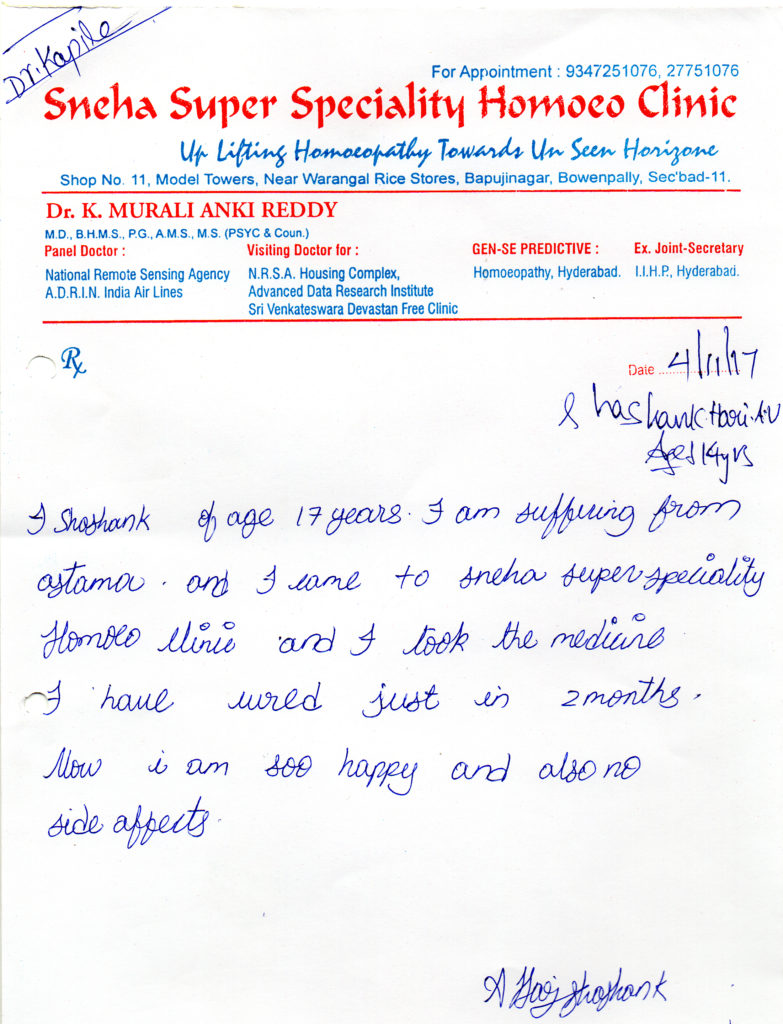 Dr. Kapile
For Appointment : 9347251076, 27751076
Sneha Super Speciality Homoeo Clinic
Up Lifting Homoeopathy Towards Un Seen Horizone
Shop No. 11, Model Towers, Near Warangal Rice Stores, Bapujinagar, Bowenpally, Sec'bad-11.
Dr. K. MURALI ANKI REDDY
M.D., B.H.M.S., P.G., A.M.S., M.S. (PSYC & Coun.)
Panel Doctor : Visiting Doctor for : GEN-SE PREDICTIVE : Ex. Joint-Secretary
National Remote Sensing Agency N.R.S.A. Housing Complex, Homoeopathy, Hyderabad. I.I.H.P., Hyderabad.
A.D.R.I.N. India Air Lines Advanced Data Research Institute
Sri Venkateswara Devastan Free Clinic
Rx
Date 4/11/17
Shashank Hari A.V
Aged 14yrs
I Shashank of age 17 years. I am suffuring from
astama. and I came to sneha super speciality
Homoeo clinic and I took the medicine
I have cured just in 2 months.
Now i am soo happy and also no
side affects.
A Shashank